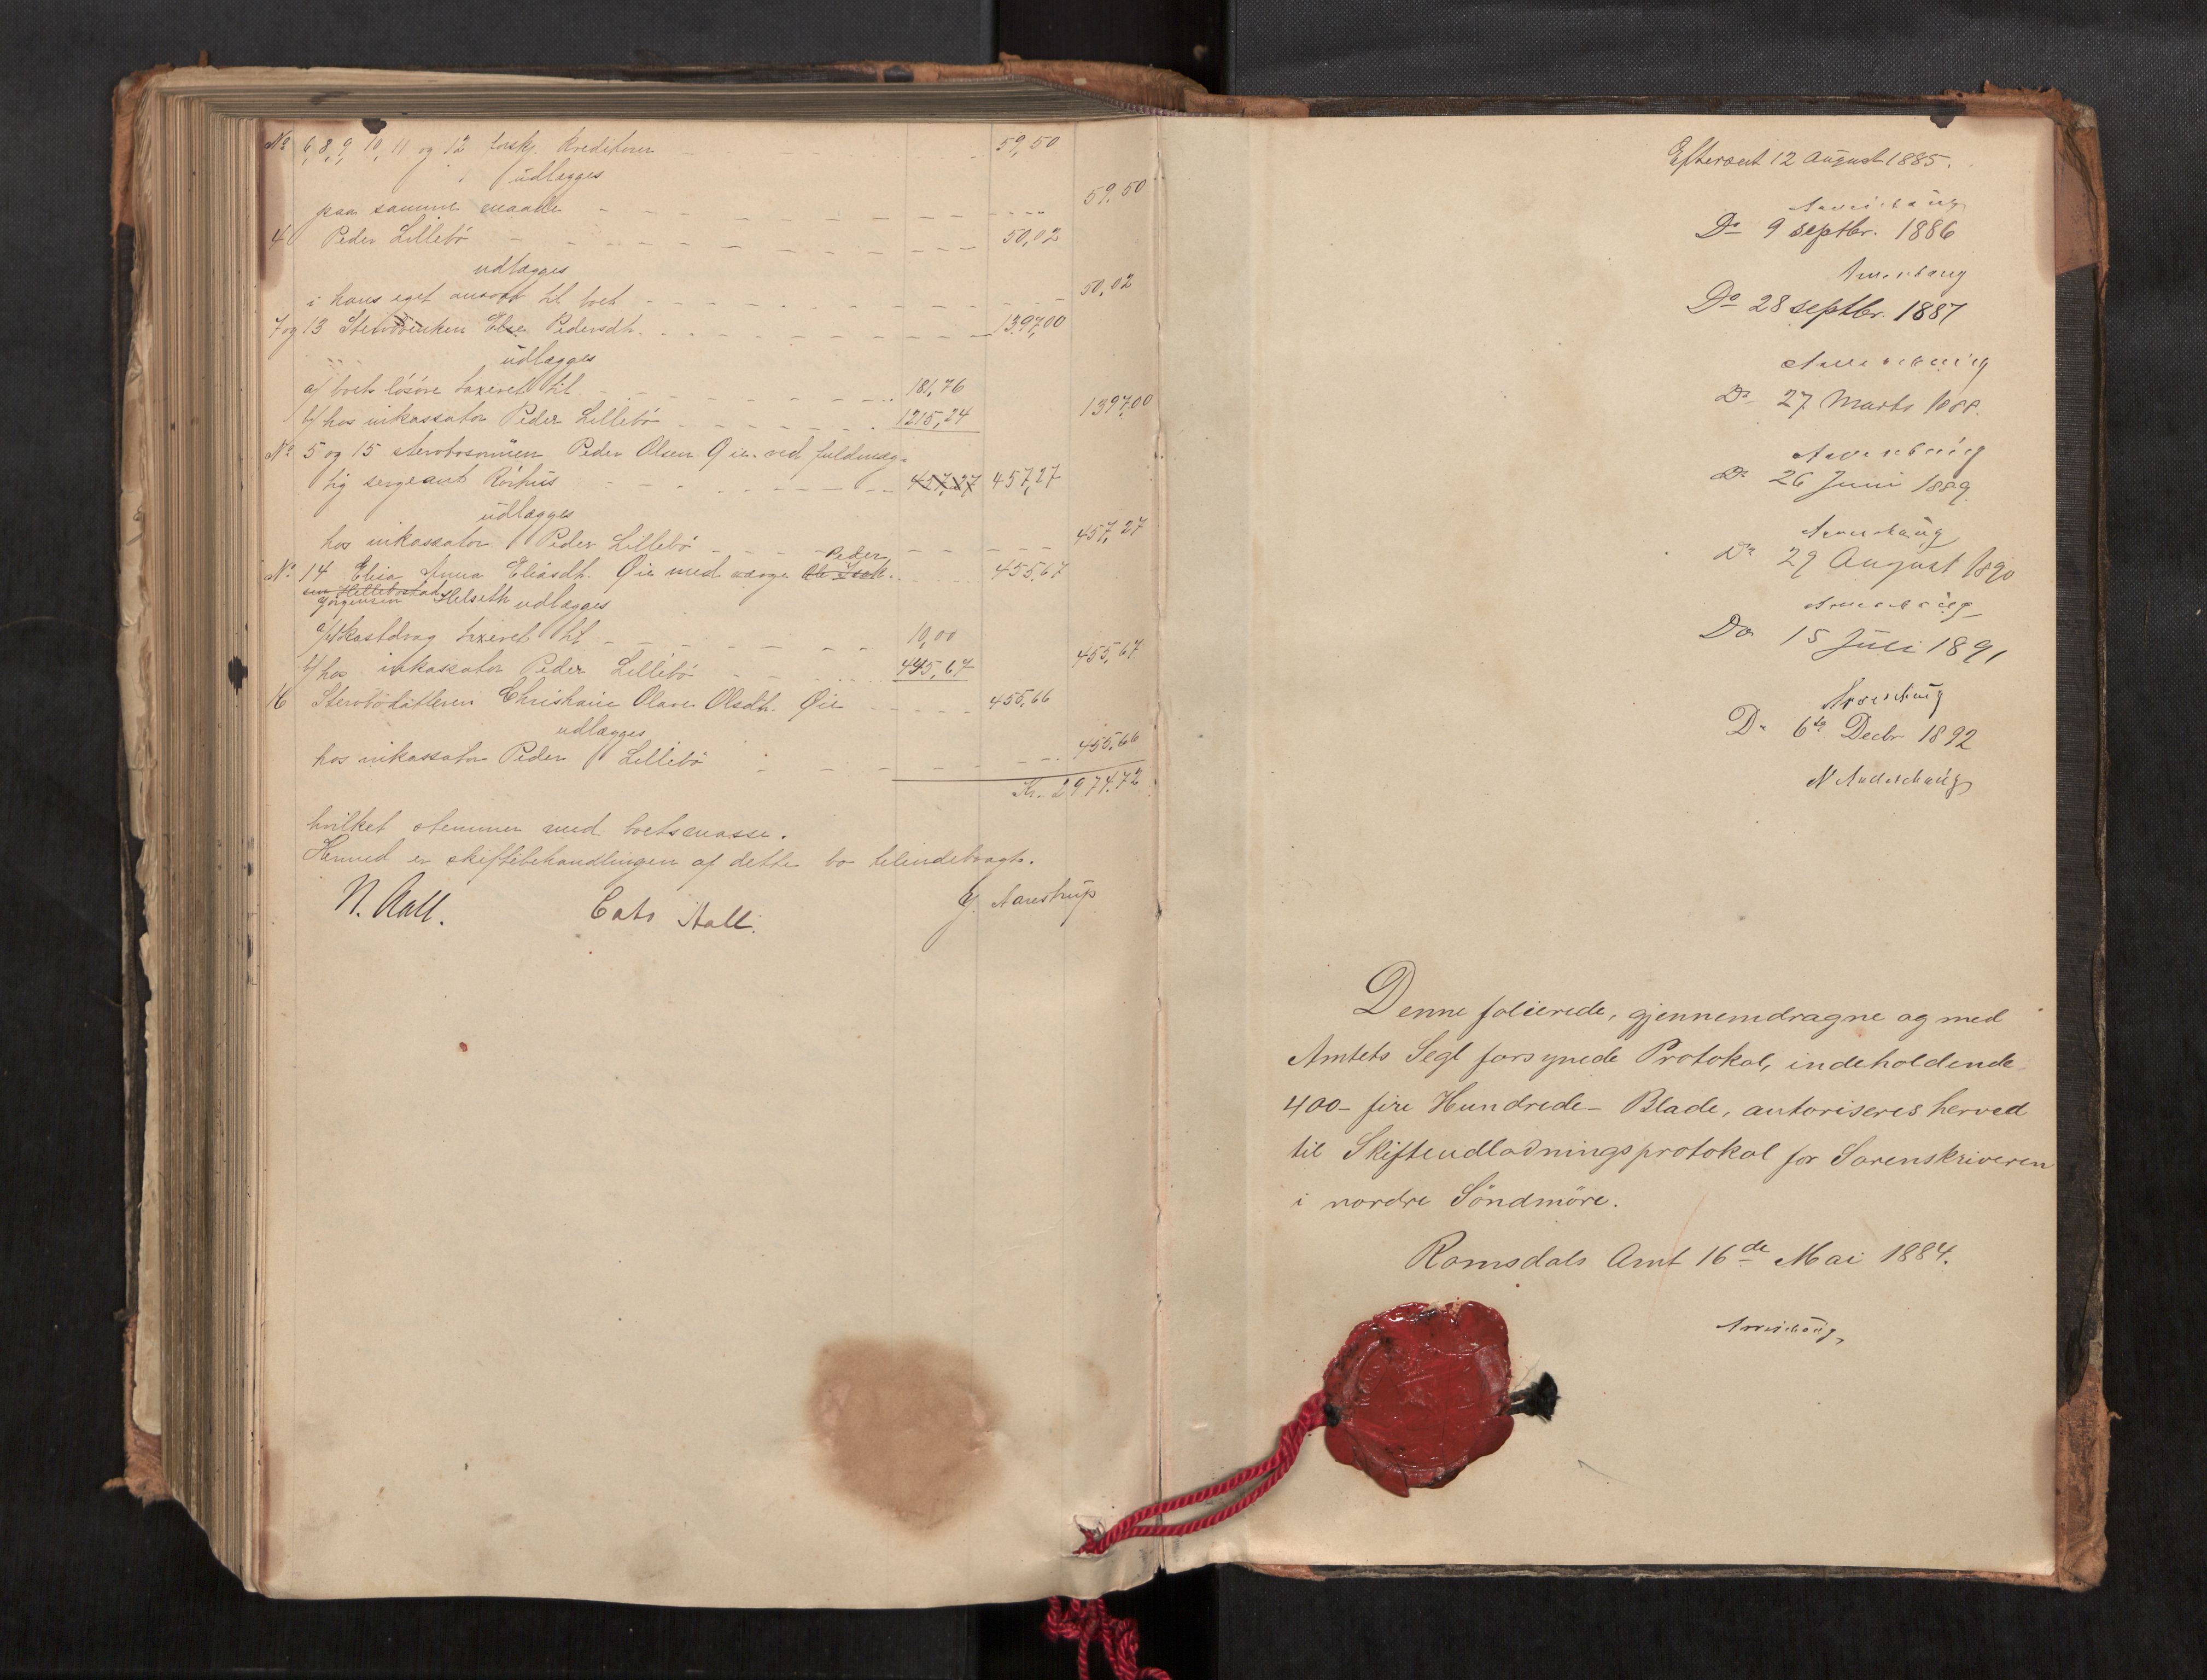 No 6, 8, 9, 10, 11 og 12 forskj. Kreditorer 59,50
udlægges
paa samme maade 59,50
4 Peder Lillebö 50,02
udlægges
i hans eget ansvar til boet 50,02
7 og 13 Stervboenken Else Pedersdt. 1397,00
udlægges
a/ boets lösöre taxeret til 181,76
b/ hos inkassator Peder Lillebö 1215,24 1397,00
No 5 og 15 stervbosönnen Peder Olsen Øie ved fuldmæg-
tig sergeant Rörhus 457,27 457,27
udlægges
hos inkassator Peder Lillebö 457,27
Peder
No 14 Elisa Anna Eliasdt. Øie med værge Ole Isak- 455,67
sen Hellebostad
Jörgensen Helseth udlægges
a/ 1 kastdrag taxeret til 10,00
b/ hos inkassator Peder Lillebö 445,67 455,67
16 Stervbodatteren Christiane Olave Olsdt. Øie 455,66
udlægges
hos inkassator Peder Lillebö 455,66
Kr. 2974.72
hvilket stemmer med boetsmasse.
Hermed er skiftebehandlingen af dette bo tilendebragt.
N. Aall. Cato Aall. J. Aarestrup
Efterseet 12 August 1885.
Do 9 septbr. 1886
Do 28 septbr. 1887
Do 27 Marts 1888.
Do 26 Juni 1889.
Do 29 August 1890
Do 15 Juli 1891
Do 6te Decbr 1892
Denne folierede, gjennemdragne og med
Amtets Segl forsynede Protokol, indeholdende
400 - fire Hundrede - Blade, autoriseres herved
til Skifteudlodningsprotokol for Sorenskriveren
i nordre Söndmöre.
Romsdals Amt 16de Mai 1884.